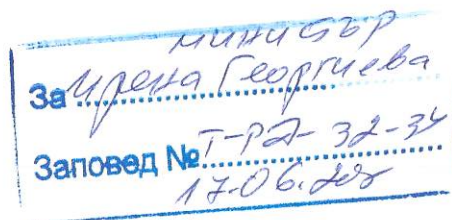 министър
За Ирена Георгиева
Заповед № Т-РД-32-34
17.06.